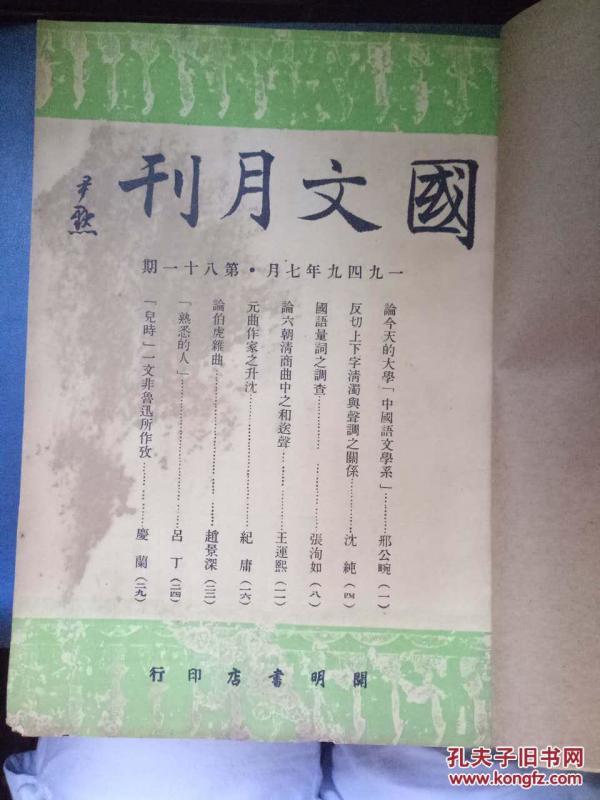 國文月刊
尹默
一九四九年七月·第八十一期
論今天的大學「中國語文學系」…………邢公畹(一)
反切上下字清濁與聲調之關係…………沈純(四)
國語量詞之調查…………張洵如(八)
論六朝清商曲中之和送聲…………王運熙(一一)
元曲作家之升沈…………紀庸(一六)
論伯虎雜曲…………趙景深(二三)
「熟悉的人」…………呂丁(二四)
「兒時」一文非魯迅所作攷…………慶蘭(二九)
開明書店印行
孔夫子旧书网
www.kongfz.com